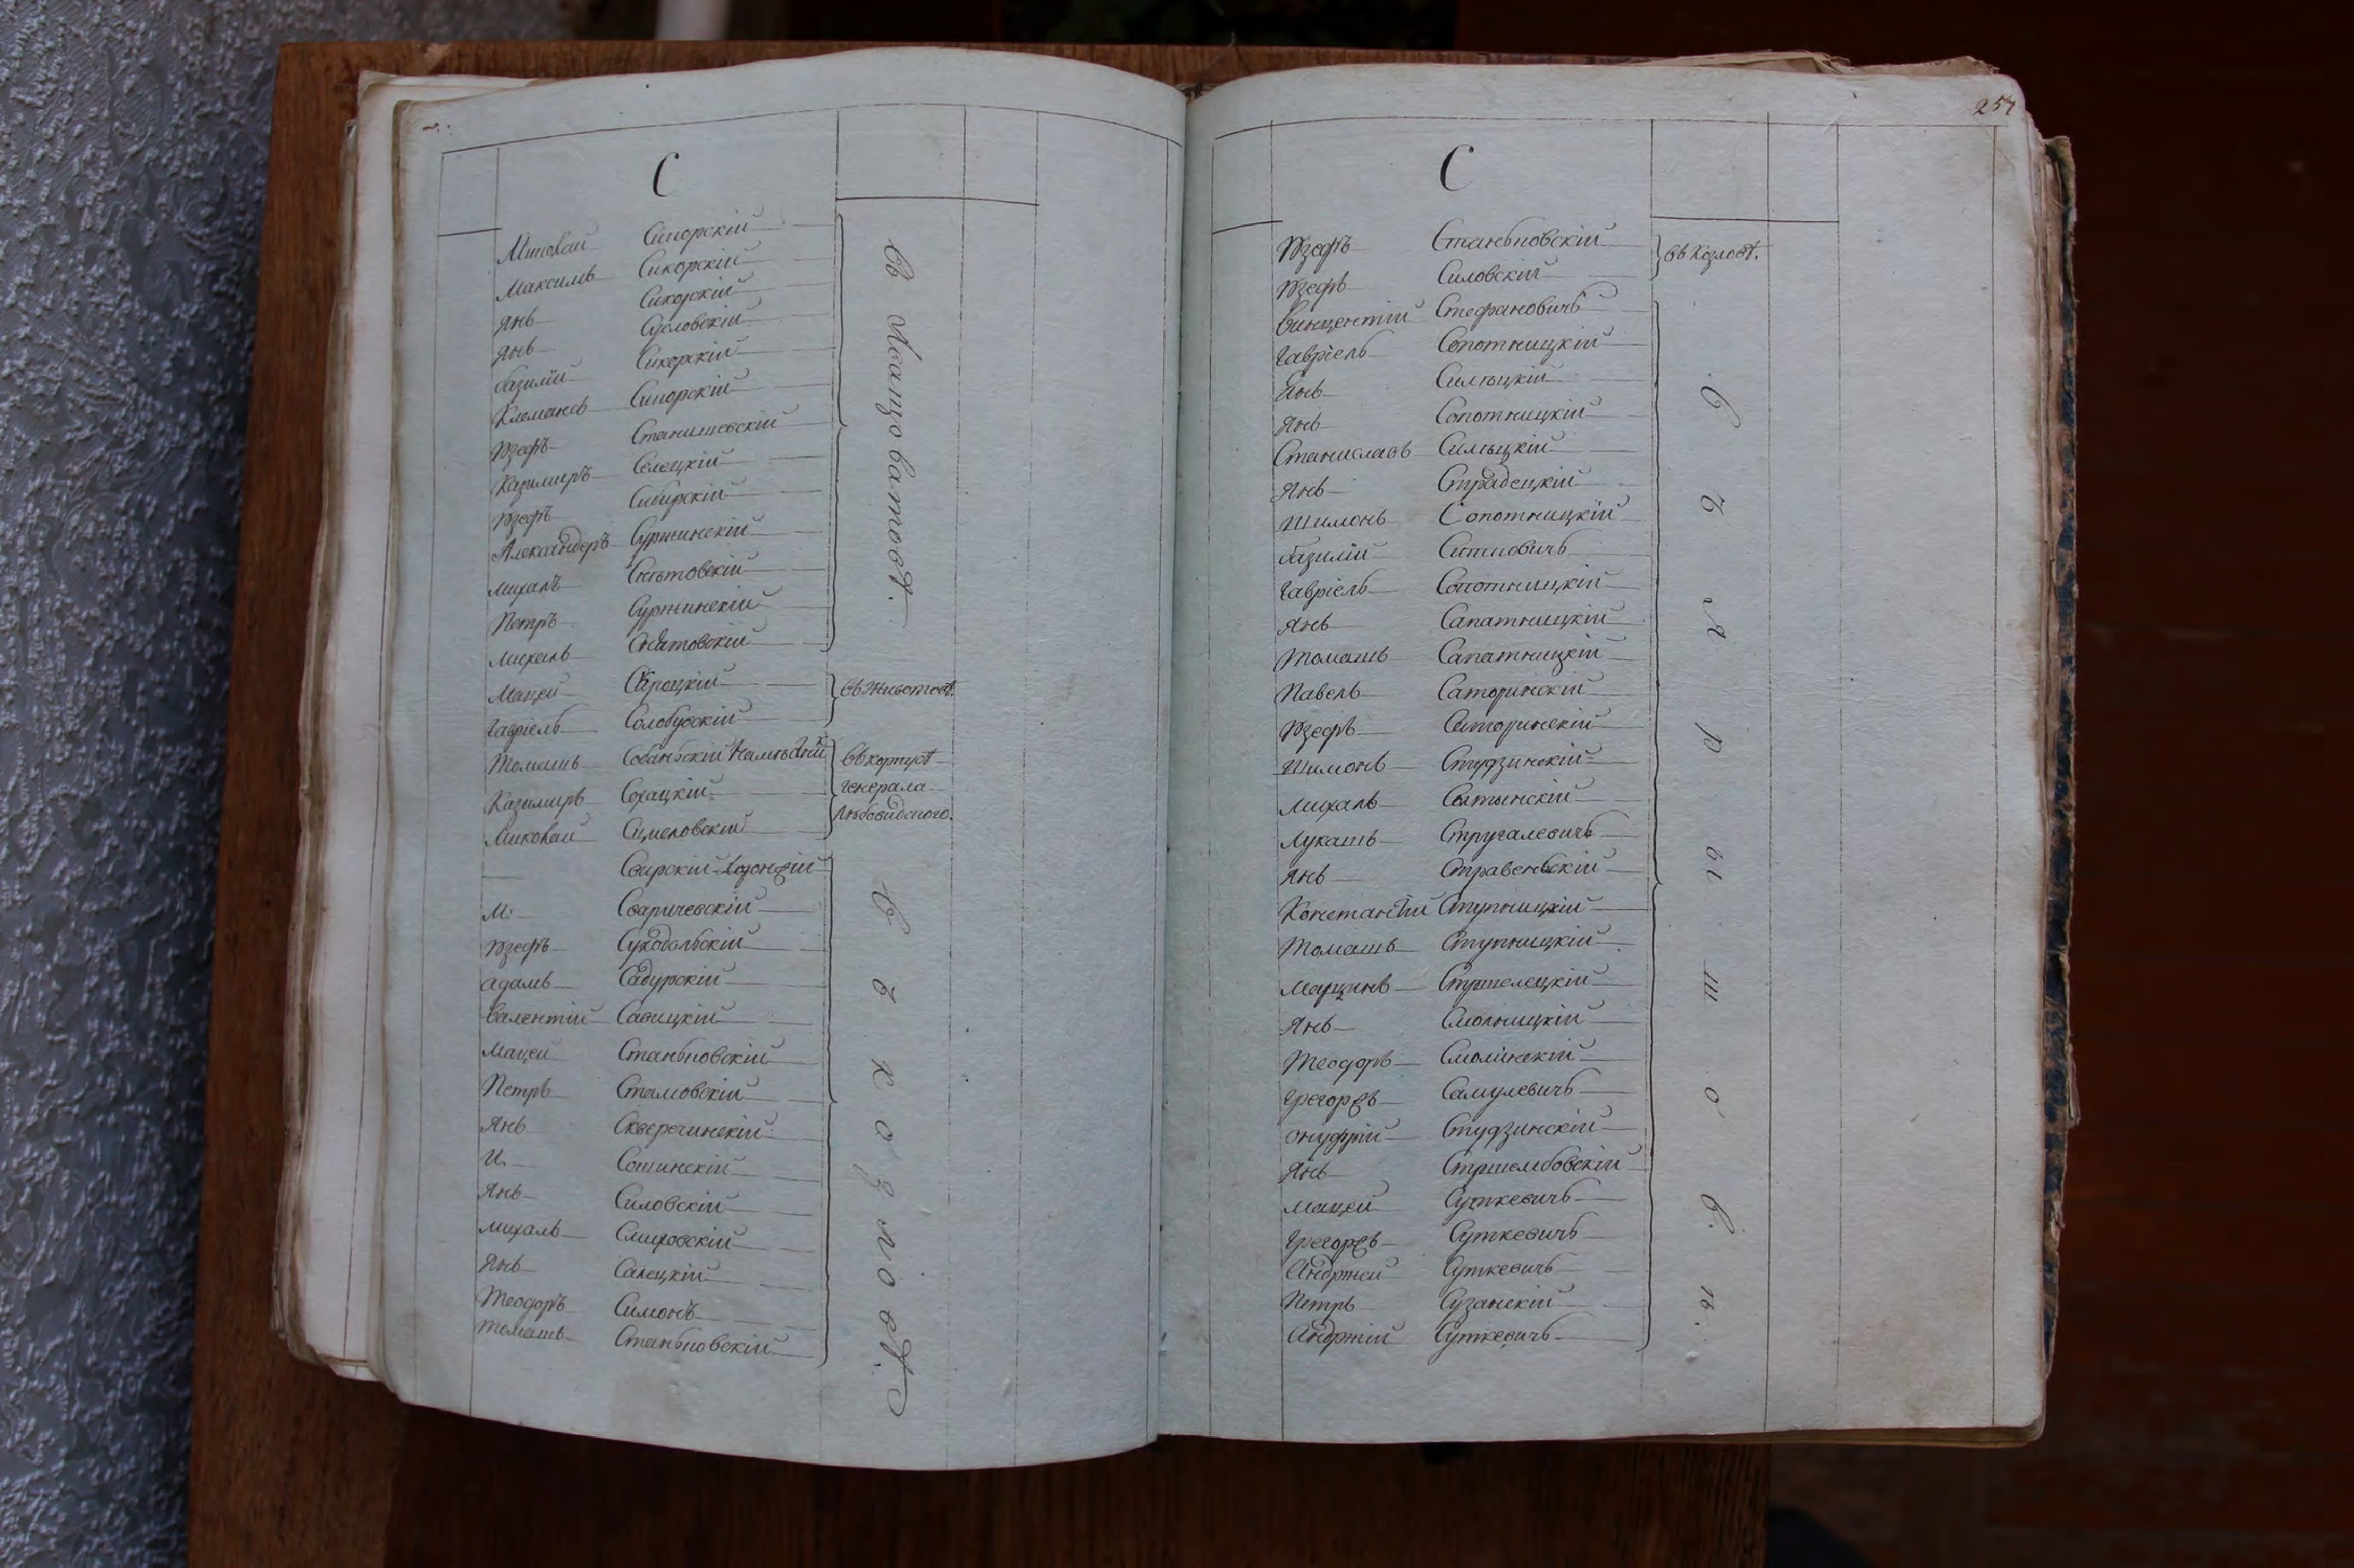 С
Миколай Сикорскій
Максимъ Сикорскій
Янъ Сикорскій
Янъ Сусловскій
базилій Сикорскій
Клемансъ Сикорскій
Юзефъ Станишевскій
Казимиръ Селецкій
Юзефъ Сибирскій
Александеръ Суржинскій
Михалъ
Петръ Суржинскій
Михалъ
въ Лоанцоватовѣ.
Мацей Сѣроцкій
Гавріель Солобувскій
въ Животовѣ.
Томашъ Собаньскій
Казимиръ Сохацкій
Миколай
въ корпусѣ
генерала
Любовидского.
Свирскій
М: Сваричевскій
Юзефъ Суходольскій
адамъ Садурскій
валентій Савицкій
Мацей Станьковскій
Петръ Стамовскій
Янъ Скверечинскій
И. Сошинскій
Янъ Силовскій
михаль Смиховскій
Янъ Салецкій
Теодоръ Симонъ
томашъ Станьковскій
въ козловѣ.
257
С
Юзефъ Станьковскій
Юзефъ Силовскій
въ Козловѣ.
Винцентій Стефановичъ
Гавріель Сопотницкій
Янъ Силицкій
Янъ Сопотницкій
Станиславъ Силицкій
Янъ Страдецкій
Шимонъ Сопотницкій
базилій Ситковичъ
Гавріель Сопотницкій
Янъ Сапатницкій
Томашъ Сапатницкій
Павель Саторинскій
Юзефъ Саторинскій
Шимонъ Студзинскій
Михаль Солтынскій
Лукашъ Стругалевичъ
Янъ Стравеньскій
Константій Ступницкій
Томашъ Ступницкій
Марцинъ Стржелецкій
Янъ Смольницкій
Теодоръ Смолинскій
Грегоржъ Самулевичъ
онуфрій Студзинскій
Янъ Стржембовскій
мацей Суткевичъ
Грегоржъ Суткевичъ
Андржей Суткевичъ
Петръ Сузанскій
Андржій Суткевичъ